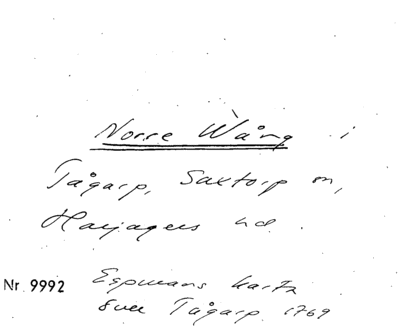 Norre Wång i
Tågarp, Saxtorp sn,
Harjagers hd.
Nr 9992 Espmans karta
över Tågarp 1769